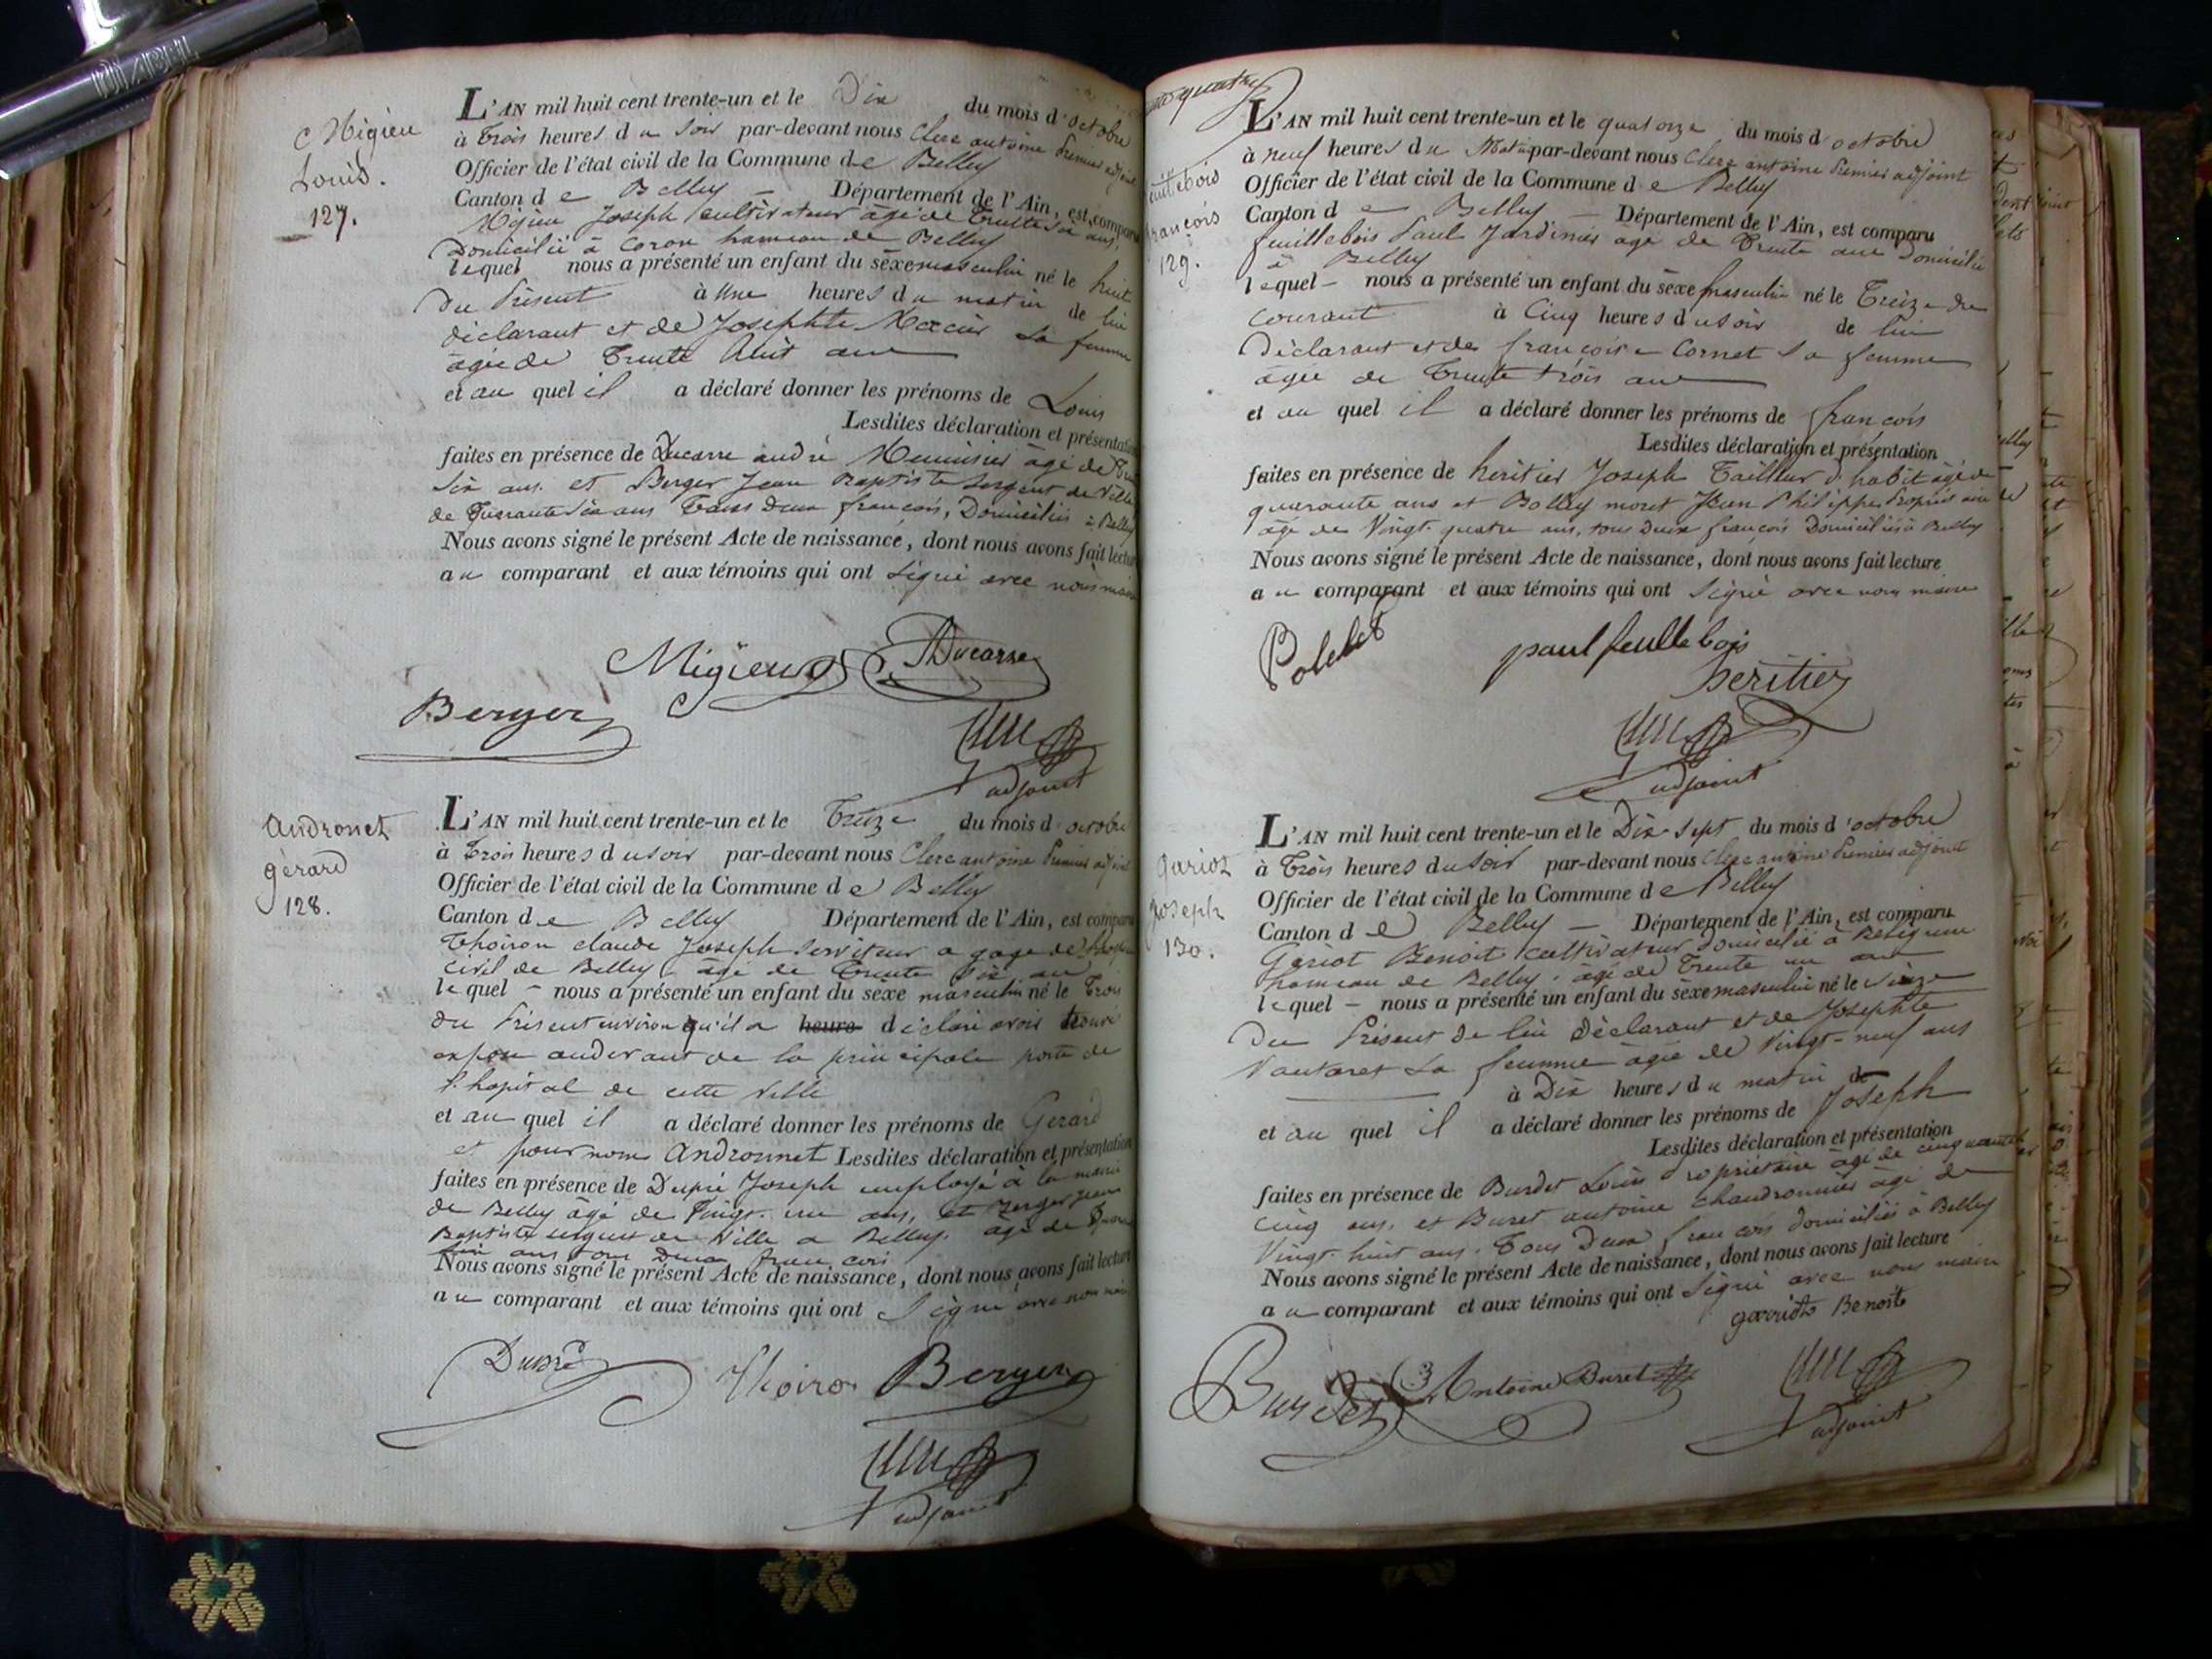 Migieu
Louis.
127.
L'AN mil huit cent trente-un et le Dix du mois d'octobre
à Trois heures du Soir par-devant nous Clerc antoine Premier adjoint
Officier de l'état civil de la Commune de Belley
Canton de Belley — Département de l'Ain, est comparu
Migieu Joseph cultivateur âgé de Trente Six ans,
Domicilié à Coron hameau de Belley
lequel nous a présenté un enfant du sèxe masculin né le huit
Du Présent à Une heures du matin de lui
déclarant et de Josephte Mercier Sa femme
âgée de Trente huit ans
et au quel il a déclaré donner les prénoms de Louis
Lesdites déclaration et présentation
faites en présence de Ducarre andré Menuisier âgé de
Six ans. et Berger Jean Baptiste Sergent de Ville
de Quarante Six ans Tous Deux françois, Domiciliés à Belley
Nous avons signé le présent Acte de naissance, dont nous avons fait lecture
au comparant et aux témoins qui ont Signé avec nous maire
Migieu Ducarre
Berger
adjoint
Andronet
gérard
128.
L'AN mil huit cent trente-un et le Treize du mois d'octobre
à Trois heures du soir par-devant nous Clerc antoine Premier adjoint
Officier de l'état civil de la Commune de Belley
Canton de Belley Département de l'Ain, est comparu
Thoiron claude Joseph Serviteur a gage de
civil de Belley, âgé de Trente Six ans
lequel – nous a présenté un enfant du sèxe masculin né le Trois
du Présent environ qu'il a heure déclaré avoir trouvé
exposé au devant de la principale porte de
l'hopital de cette Ville
et au quel il a déclaré donner les prénoms de Gerard
et pour nom Andronnet Lesdites déclaration et présentation
faites en présence de Dupré Joseph employé à la mairie
de Belley âgé de Vingt. un ans, et Berger jean
Baptiste sergent de Ville a Belley. agé de
Six ans tous Deux françois
Nous avons signé le présent Acte de naissance, dont nous avons fait lecture
au comparant et aux témoins qui ont Signé avec nous maire
Dupré Thoiron Berger
adjoint
quatre
françois
129.
L'AN mil huit cent trente-un et le quatorze du mois d'octobre
à neuf heures du Matin par-devant nous Clerc antoine Premier adjoint
Officier de l'état civil de la Commune de Belley
Canton de Belley — Département de l'Ain, est comparu
feuillebois Paul Jardinier agé de Trente ans Domicilié
à Belley
lequel – nous a présenté un enfant du sèxe masculin né le Treize du
courant à Cinq heures du soir de lui
Déclarant et de françoise Cornet Sa femme
âgée de Trente trois ans
et au quel il a déclaré donner les prénoms de françois
Lesdites déclaration et présentation
faites en présence de héritier Joseph Tailleur d'habit âgé de
quarante ans et Bolley moret Jean Philippe Propriétaire
âgé de Vingt. quatre ans, tous Deux françois Domiciliés à Belley
Nous avons signé le présent Acte de naissance, dont nous avons fait lecture
au comparant et aux témoins qui ont Signé avec nous maire
paul feullebois
heritier
adjoint
Gariot
Joseph
130.
L'AN mil huit cent trente-un et le Dix Sept du mois d'octobre
à Trois heures du Soir par-devant nous Clerc antoine Premier adjoint
Officier de l'état civil de la Commune de Belley
Canton de Belley — Département de l'Ain, est comparu
Gariot Benoit cultivateur Domicilié à
hameau de Belley. âgé de Trente un ans
lequel – nous a présenté un enfant du sèxe masculin né le Seize
Du Présent de lui Déclarant et de Josephte
Vautaret Sa femme âgée de Vingt-neuf ans
à Dix heures du matin de
et au quel il a déclaré donner les prénoms de Joseph
Lesdites déclaration et présentation
faites en présence de Burdet Louis Propriétaire âgé de cinquante
Cinq ans, et Buret antoine Chaudronnier âgé de
Vingt. huit ans. Tous Deux françois domiciliés à Belley
Nous avons signé le présent Acte de naissance, dont nous avons fait lecture
au comparant et aux témoins qui ont Signé avec nous maire
garriot Benoit
Burdet Antoine Buret
adjoint